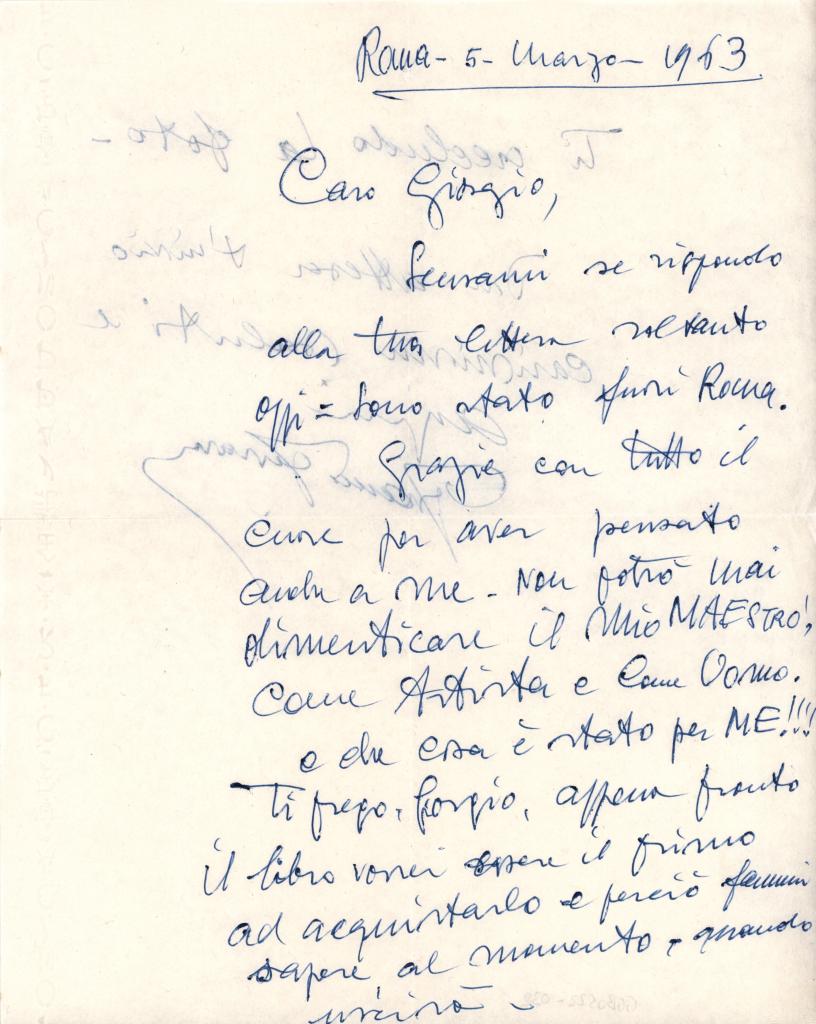 Roma - 5 - Marzo - 1963
Caro Giorgio,
Scusami se rispondo
alla tua lettera soltanto
oggi = Sono stato fuori Roma.
Grazie con tutto il
cuore per aver pensato
anche a me - Non potrò mai
dimenticare il mio MAESTRO!,
Come Artista e Come Uomo.
e che cosa è stato per ME!!!!
Ti prego, Giorgio, appena pronto
il libro vorrei essere il primo
ad acquistarlo e perciò fammi
sapere, al momento, quando
uscirà -
Ti accludo la foto -
In attesa t'invio
carissimi saluti e
auguri